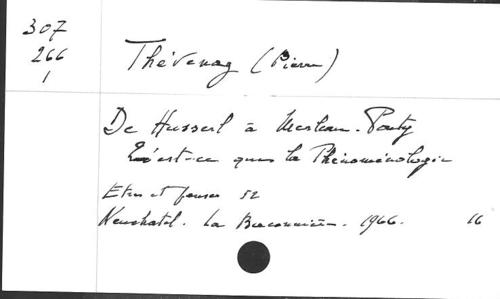 307
266
1
Thévenaz (Pierre)
De Husserl à Merleau-Ponty
Qu'est-ce que la Phénoménologie
Etre et penser 52
Neuchatel. La Baconnière. 1966. 16